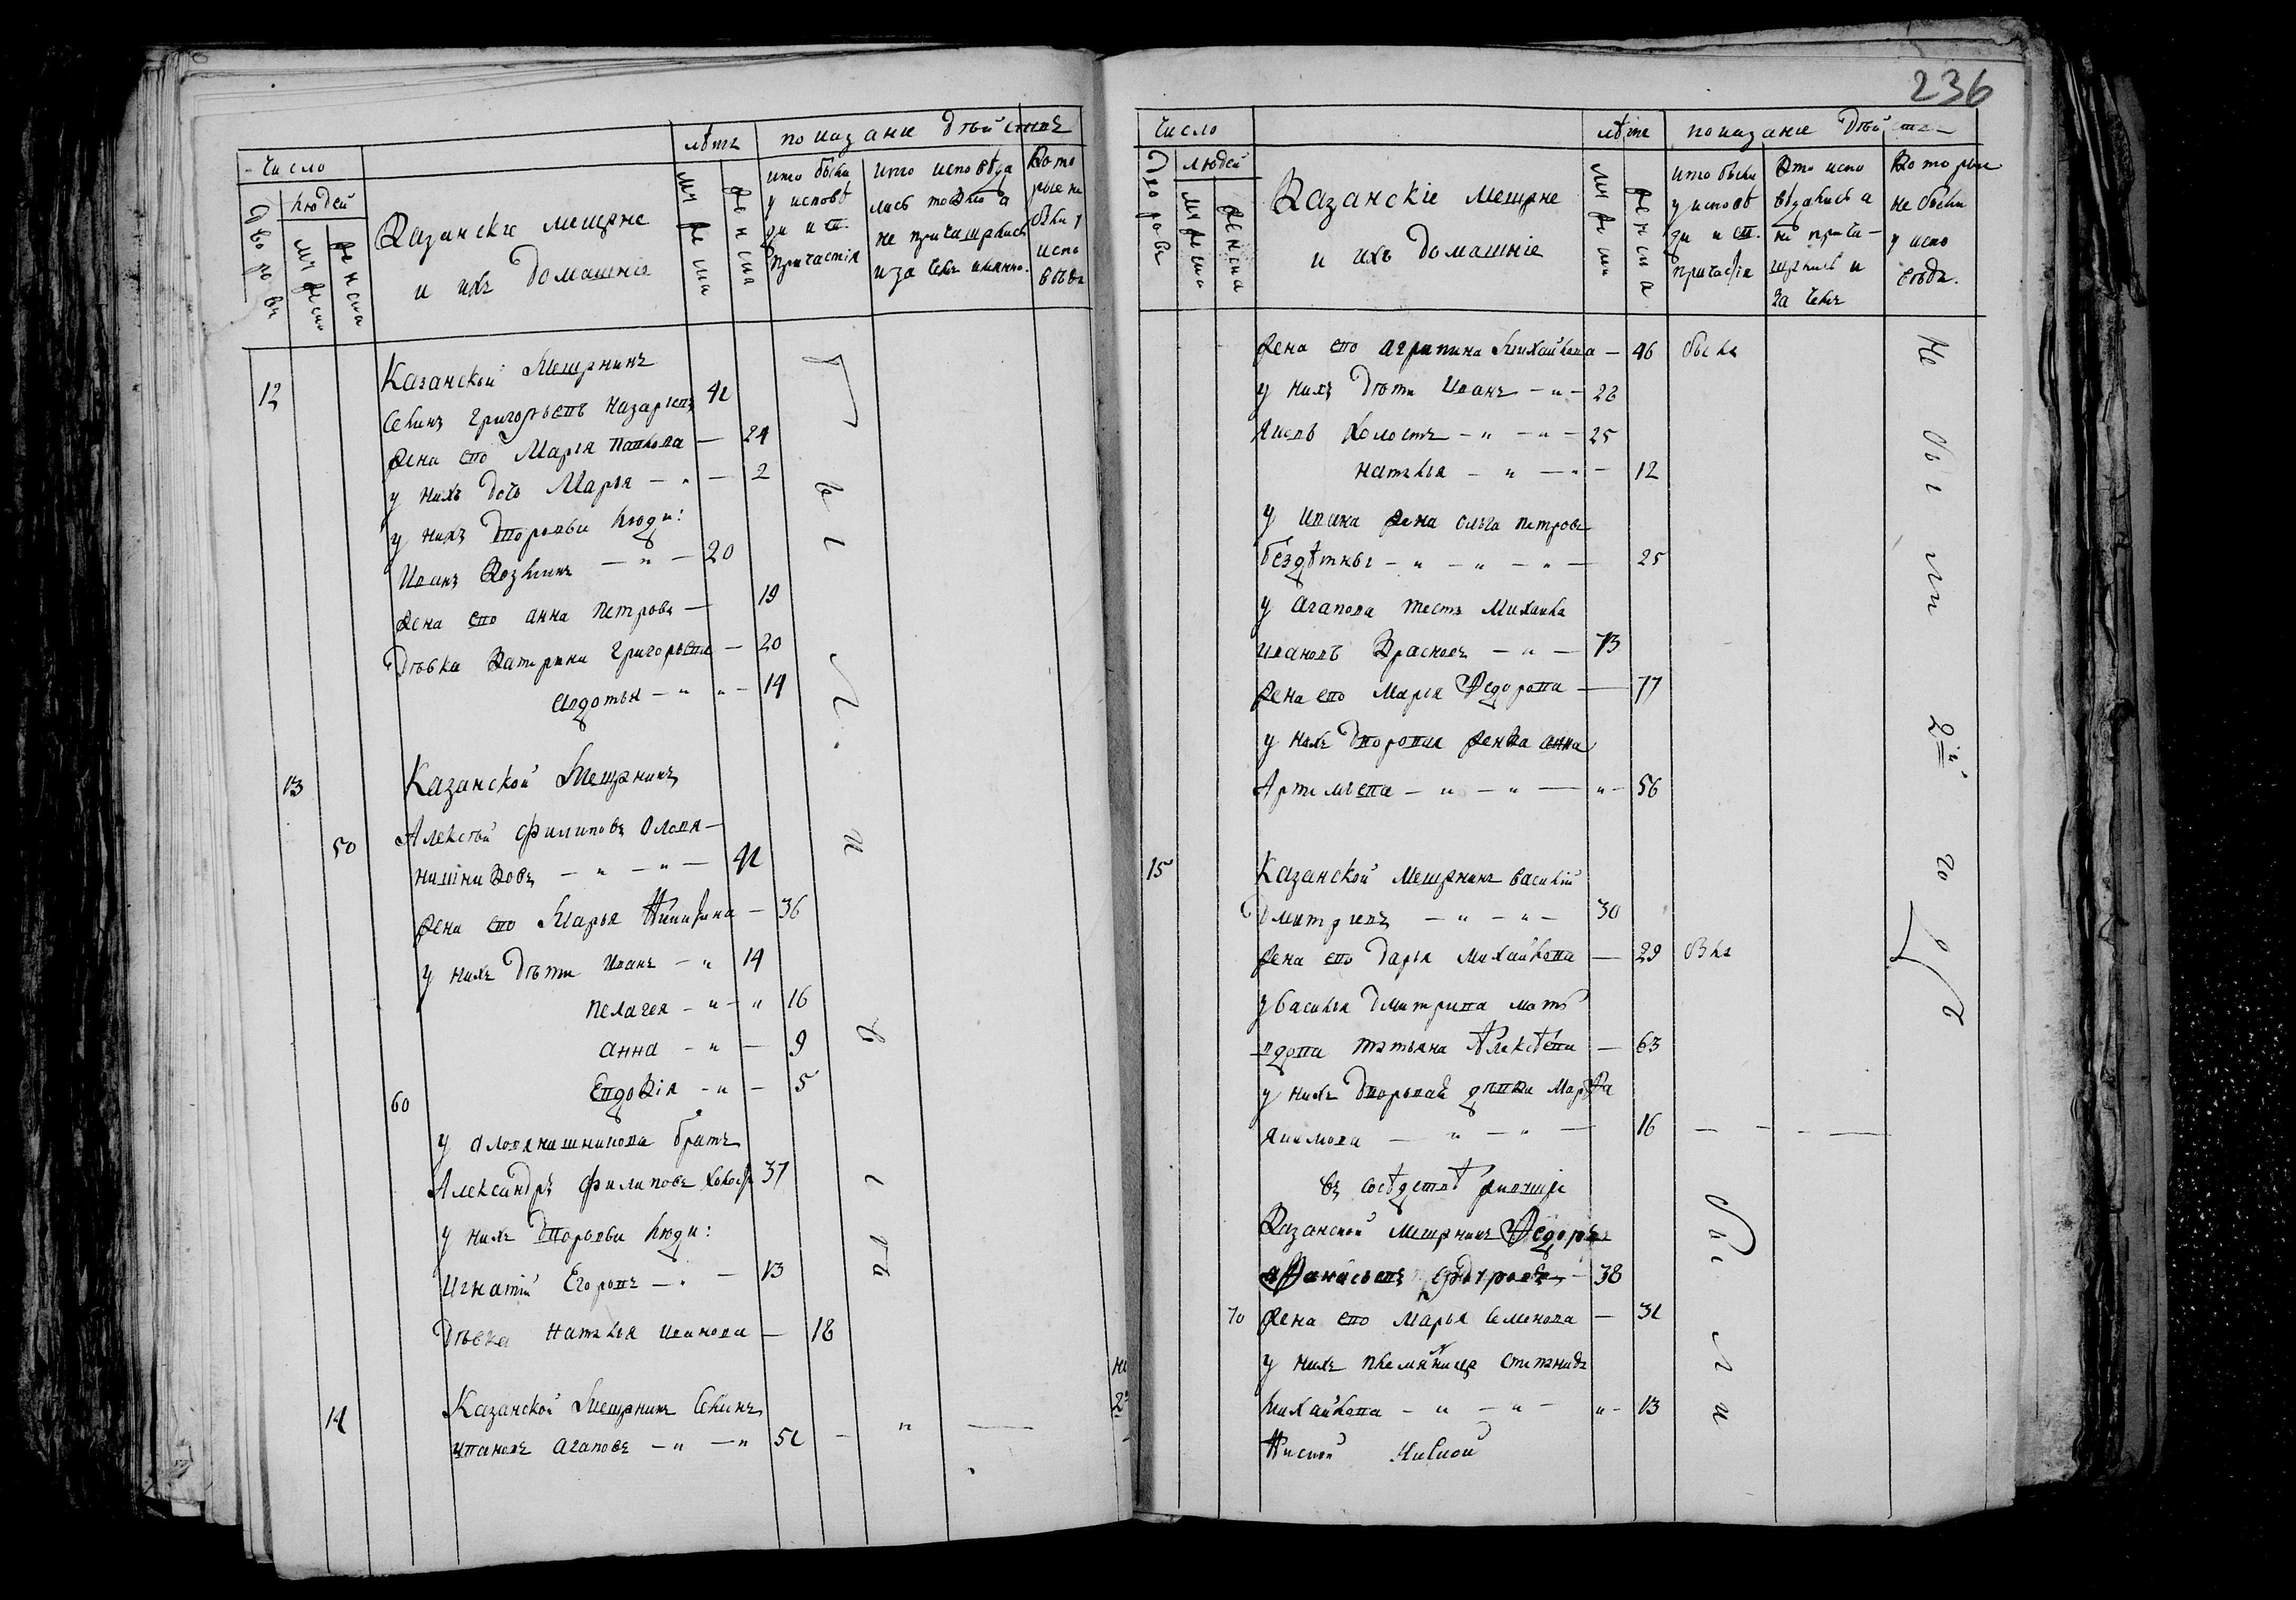 Число
лѣтъ
показание дѣйства
дворовъ
людей
мужеска
женска
Казанскіе мещане
и ихъ домашніе
мужеска
женска
кто были
у исповѣ
ди и св.
причастія
кто исповѣда
лись токмо а
не причащались
и за чемъ именно.
Кото
рые не
были у
испо
вѣди
12
Казанской Мещанинъ
Григорьевъ Назарьевъ 42
жена ево Марья Павлова — 24
у нихъ дочь Марья — " — 2
у нихъ дворовыи люди:
Иванъ Козминъ — " — 20
жена ево анна петрова — 19
Дѣвка Катерина Григорьева — 20
авдотья — " " — 14
13
Казанской Мещанинъ
50
Алексѣй филиповъ Оловя—
нишниковъ — " — " — 42
жена ево Марья Никитина — 36
у нихъ дѣти Иванъ — " 14
пелагея — " — " 16
анна — " — 9
60 Евдокія — " — 5
у оловянишникова братъ
Александръ филиповъ холостъ 37
у нихъ дворовыи люди:
Игнатій Егоровъ — " — 13
Дѣвка Наталья иванова — 18
14
Казанской Мещанинъ
ивановъ агаповъ — " — " 52 — " —
Были у исповѣ
236
Число
лѣта
показание дѣйства
дворовъ
людей
мужеска
женска
Казанскіе мещане
и ихъ домашніе
мужеска
женска
кто были
у исповѣ
ди и св.
причастія
Кто испо
вѣдались а
не прича—
щались и
за чемъ
Которые
не были
у испо
вѣди.
жена ево агрипина Михайлова — 46 была
у нихъ дѣти Иванъ — " — 28
Яковъ холостъ — " — " — 25
наталья — " — " — 12
у ивана жена олга петрова
бездѣтны — " — " — " — 25
у агапова тесть Михайла
ивановъ Красновъ — " — 73
жена ево Марья Федорова — 77
у нихъ дворовая женка анна
Артемьева — " — " — " — 56
15
Казанской Мещанинъ василій
Дмитриевъ — " — " — 30
жена ево дарья Михайлова — 29 была
у василья дмитриева мать
вдова татьяна Алексѣева — 63
у нихъ дворовая дѣвка Марфа
якимова — " — " — 16 — — — —
въ сосѣдствѣ живущіе
Казанской Мещанинъ Федоръ
афанасьевъ — 38
70 жена ево Марья Семенова — 32
у нихъ племяница степанида
Михайлова — " — " — " — 13
Не были 2й годъ
были